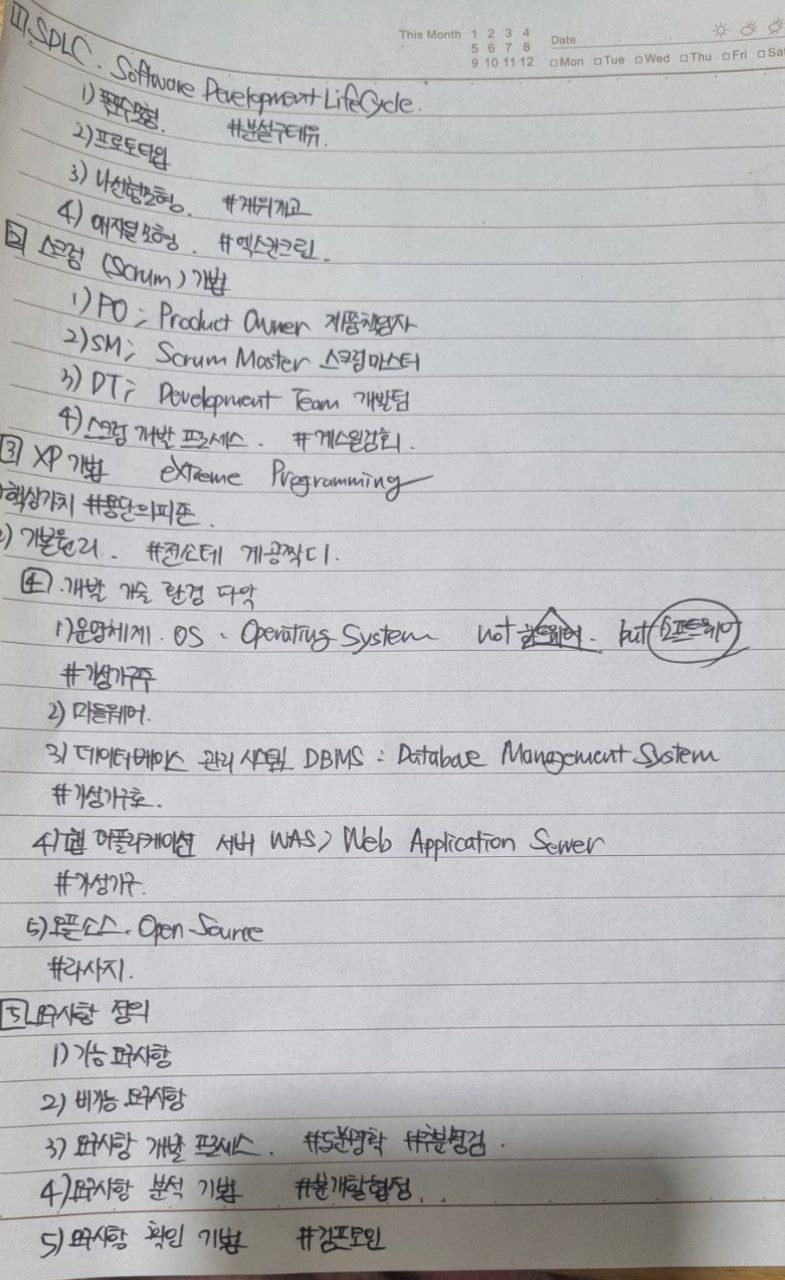 This Month 1 2 3 4
5 6 7 8
9 10 11 12
Date
□Mon □Tue □Wed □Thu □Fri □Sat
SDLC. Software Development LifeCycle.
1) 폭포수모형. #분설구테유.
2) 프로토타입
3) 나선형모형. #계위개고
4) 애자일모형. #엑스칸크린.
2 스크럼 (Scrum) 기법
1) PO; Product Owner 제품책임자
2) SM; Scrum Master 스크럼마스터
3) DT; Development Team 개발팀
4) 스크럼 개발 프로세스. #계스일검회.
3 XP 기법 eXtreme Programming
핵심가치 #용단의피존.
2) 기본원리. #전소테 계공짝디.
4. 개발 기술 환경 파악
1) 운영체제. OS. Operating System not 하드웨어. but 소프트웨어
#가성기구주
2) 미들웨어.
3) 데이터베이스 관리 시스템 DBMS: Database Management System
#가성기구호.
4) 웹 어플리케이션 서버 WAS; Web Application Server
#가성기구.
5) 오픈소스. Open Source
#라사지.
5 요구사항 정의
1) 기능 요구사항
2) 비기능 요구사항
3) 요구사항 개발 프로세스. #도분명확
4) 요구사항 분석 기법 #분개할협정..
5) 요구사항 확인 기법 #검프모인